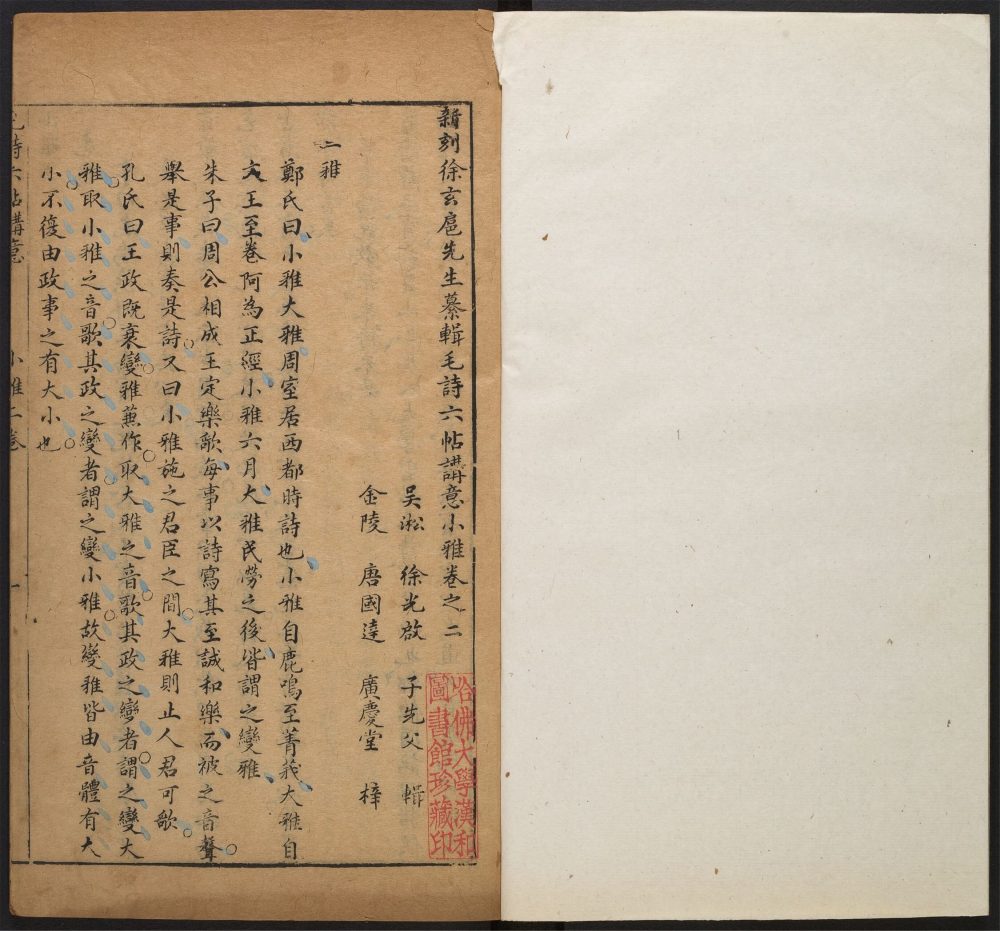 新刻徐玄扈先生纂輯毛詩六帖講意小雅卷之二
吳淞 徐光啟 子先父 輯
金陵 唐國達 廣慶堂 梓
二雅
鄭氏曰小雅大雅周室居西都時詩也小雅自鹿鳴至菁莪大雅自
文王至卷阿為正經小雅六月大雅民勞之後皆謂之變雅
朱子曰周公相成王定樂歌每事以詩寫其至誠和樂而被之音聲
舉是事則奏是詩又曰小雅施之君臣之間大雅則止人君可歌
孔氏曰王政既衰變雅蒹作取大雅之音歌其政之變者謂之變大
雅取小雅之音歌其政之變者謂之變小雅故變雅皆由音體有大
小不復由政事之有大小也
毛詩六帖講意 小雅二卷 一
哈佛大學漢和
圖書館珍藏印